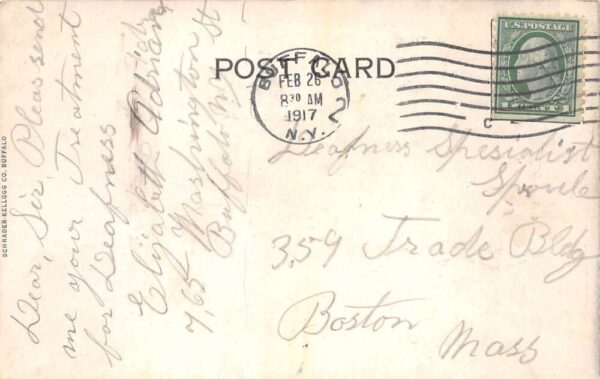 POST CARD
BUFFALO
FEB 26
8 30 AM
1917
N.Y.
2
U.S. POSTAGE
1 CENT 1
SCHRADER-KELLOGG CO. BUFFALO
Dear, Sir, Pleas send
me your Treatment
for Deafness
Elizabeth Adrian
765 Washington St
Buffalo NY
Deafness Spesialist
Sproule
359 Trade Bldg
Boston
Mass